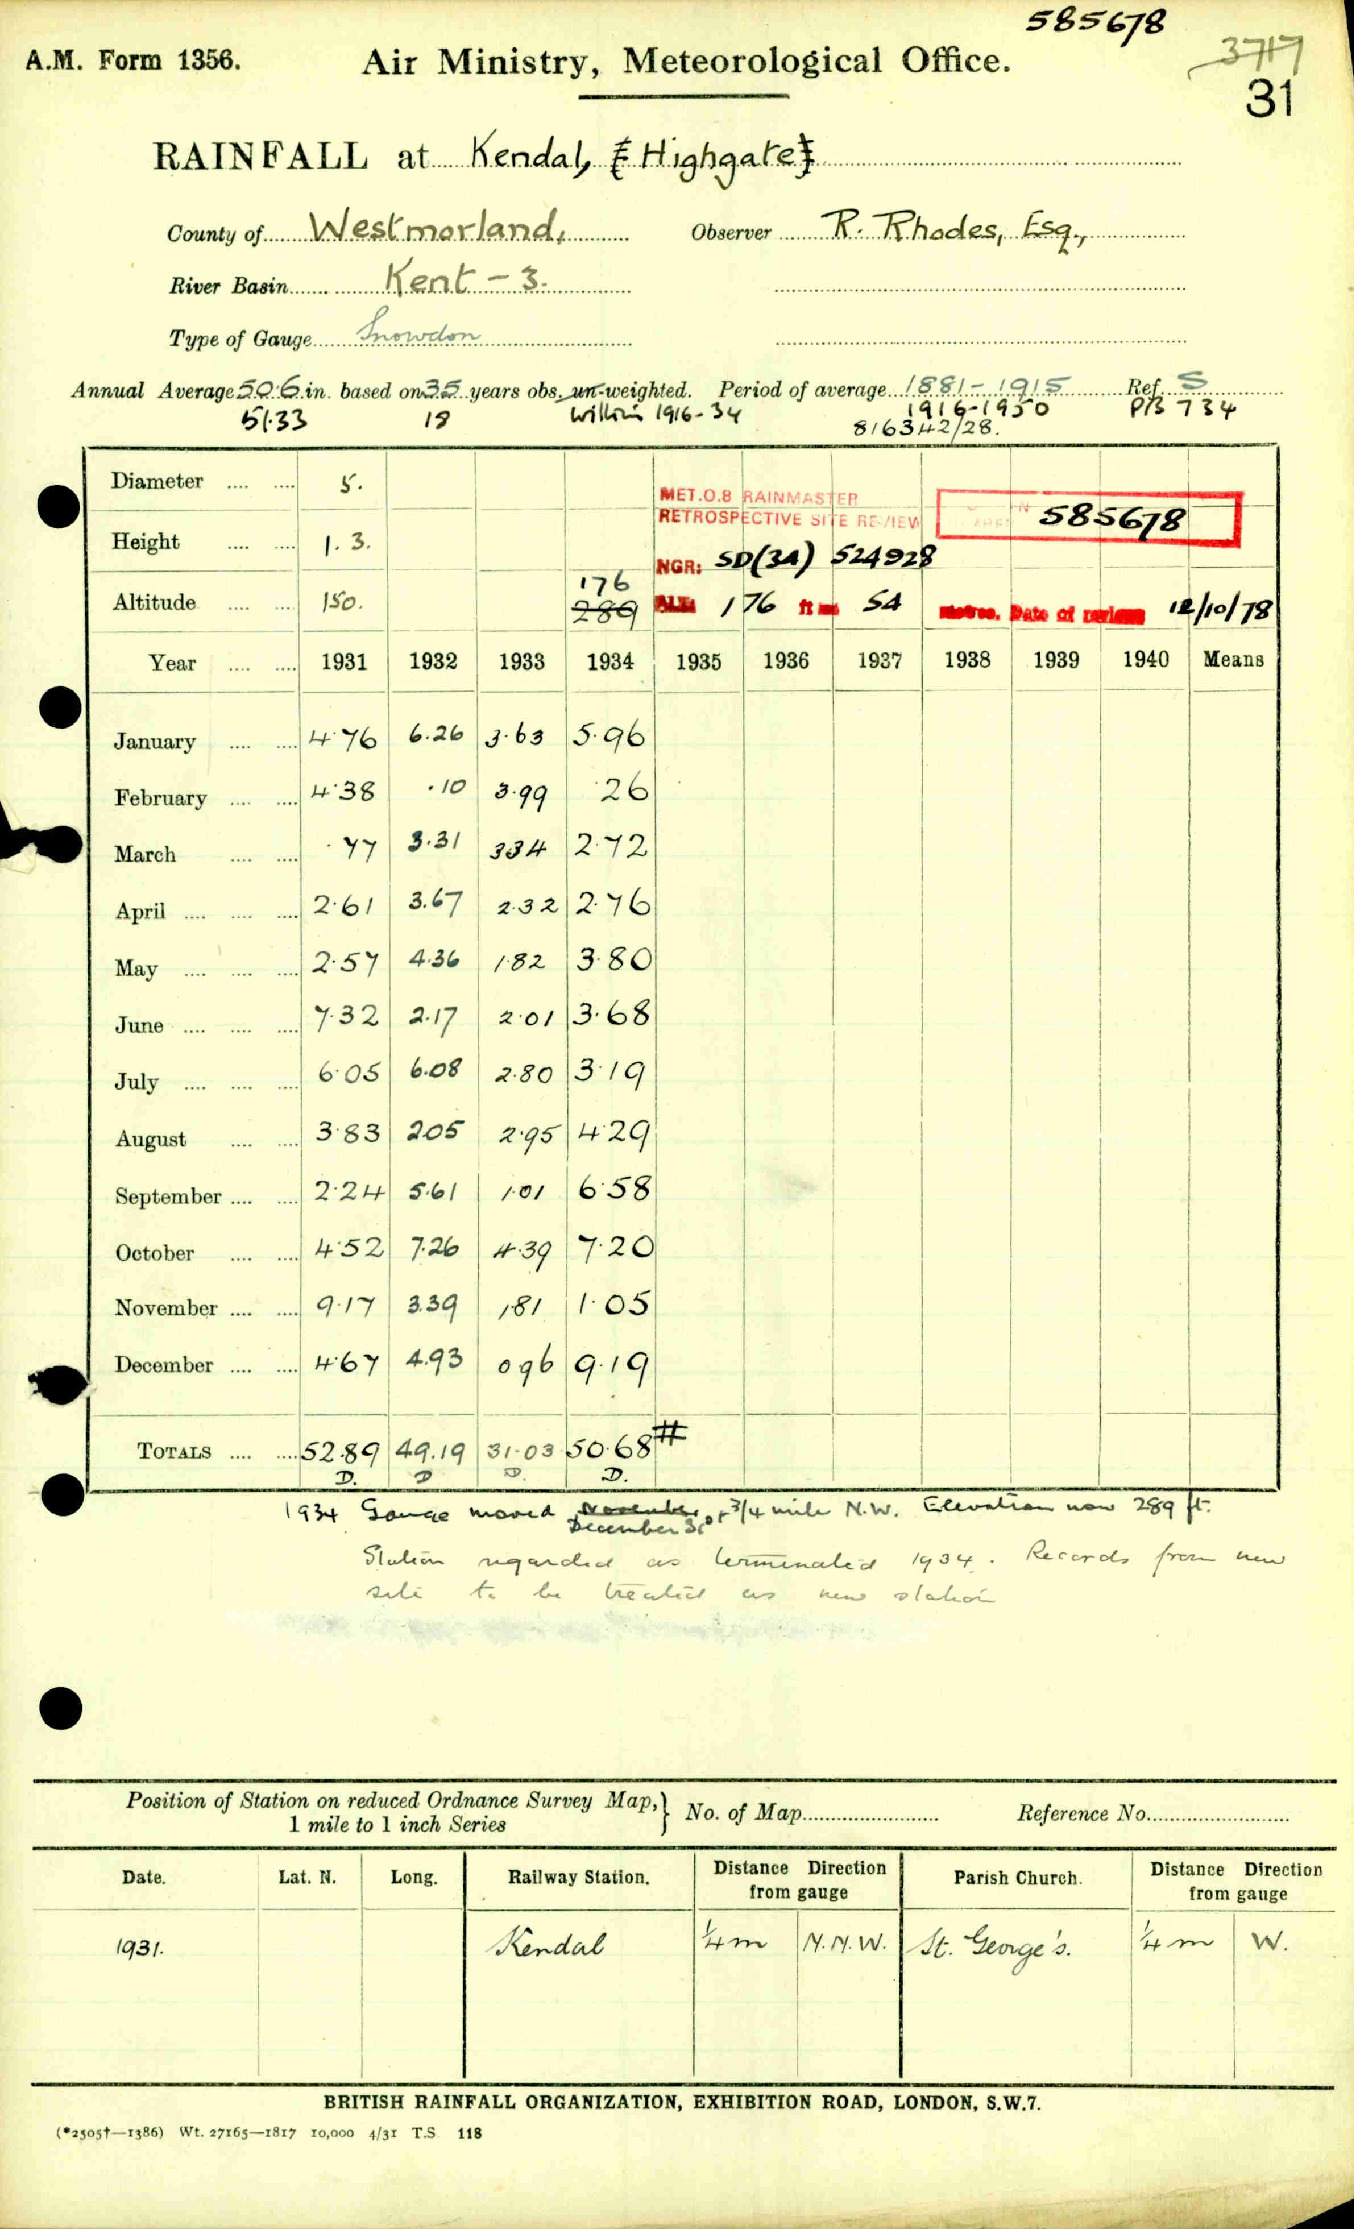 585678
A.M. Form 1356. Air Ministry, Meteorological Office. 3717
31
RAINFALL at Kendal, [Highgate]
County of Westmorland, Observer R. Rhodes, Esq.,
River Basin Kent - 3.
Type of Gauge Snowdon
Annual Average 50.6 in. based on 35 years obs. un-weighted. Period of average 1881-1915 Ref. S
51.33 18 within 1916-34 1916-1950 P/B 734
816342/28.
Diameter 5.
MET.O.8 RAINMASTER
RETROSPECTIVE SITE REVIEW 585678
Height 1. 3.
NGR: SD(34) 524928
176
Altitude 150. 289 ALT: 176 ft 54 metres. Date of review 12/10/78
Year 1931 1932 1933 1934 1935 1936 1937 1938 1939 1940 Means
January 4.76 6.26 3.63 5.96
February 4.38 .10 3.99 .26
March .77 3.31 3.34 2.72
April 2.61 3.67 2.32 2.76
May 2.57 4.36 1.82 3.80
June 7.32 2.17 2.01 3.68
July 6.05 6.08 2.80 3.19
August 3.83 2.05 2.95 4.29
September 2.24 5.61 1.01 6.58
October 4.52 7.26 4.39 7.20
November 9.17 3.39 1.81 1.05
December 4.67 4.93 0.96 9.19
TOTALS 52.89 49.19 31.03 50.68 #
D. D D. D.
1934 Gauge moved November 3/4 mile N.W. Elevation now 289 ft.
December 31st
Station regarded as terminated 1934. Records from new
site to be treated as new station
Position of Station on reduced Ordnance Survey Map,} No. of Map Reference No.
1 mile to 1 inch Series
Date. Lat. N. Long. Railway Station. Distance Direction from gauge Parish Church. Distance Direction from gauge
1931. Kendal 1/4 m N.N.W. St. George's. 1/4 m W.
BRITISH RAINFALL ORGANIZATION, EXHIBITION ROAD, LONDON, S.W.7.
(*2505†—1386) Wt. 27165—1817 10,000 4/31 T.S 118